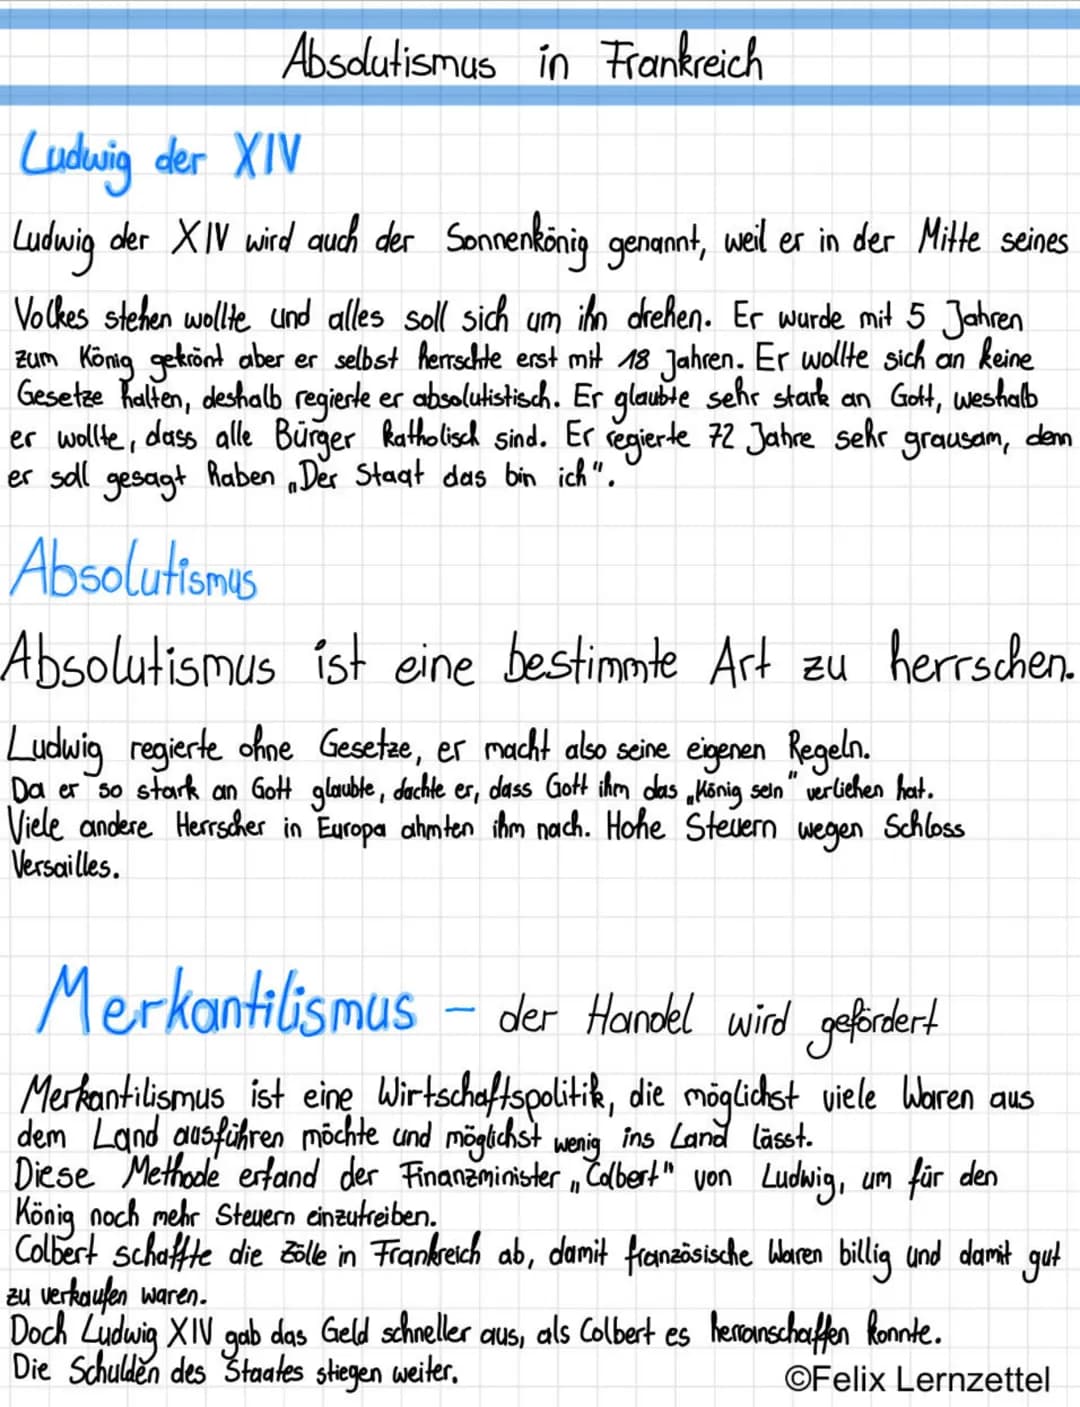 Absolutismus in Frankreich
Ludwig der XIV
Ludwig der XIV wird auch der Sonnenkönig genannt, weil er in der Mitte seines
Volkes stehen wollte und alles soll sich um ihn drehen. Er wurde mit 5 Jahren
zum König gekrönt aber er selbst herrschte erst mit 18 Jahren. Er wollte sich an keine
Gesetze halten, deshalb regierte er absolutistisch. Er glaubte sehr stark an Gott, weshalb
er wollte, dass alle Bürger katholisch sind. Er regierte 72 Jahre sehr grausam, denn
er soll gesagt haben „Der Staat das bin ich".
Absolutismus
Absolutismus ist eine bestimmte Art zu herrschen.
Ludwig regierte ohne Gesetze, er macht also seine eigenen Regeln.
Da er so stark an Gott glaubte, dachte er, dass Gott ihm das „König sein" verliehen hat.
Viele andere Herrscher in Europa ahmten ihm nach. Hohe Steuern wegen Schloss
Versailles.
Merkantilismus – der Handel wird gefördert
Merkantilismus ist eine Wirtschaftspolitik, die möglichst viele Waren aus
dem Land ausführen möchte und möglichst wenig ins Land lässt.
Diese Methode erfand der Finanzminister „Colbert" von Ludwig, um für den
König noch mehr Steuern einzutreiben.
Colbert schaffte die Zölle in Frankreich ab, damit französische Waren billig und damit gut
zu verkaufen waren.
Doch Ludwig XIV gab das Geld schneller aus, als Colbert es herranschaffen konnte.
Die Schulden des Staates stiegen weiter.
©Felix Lernzettel